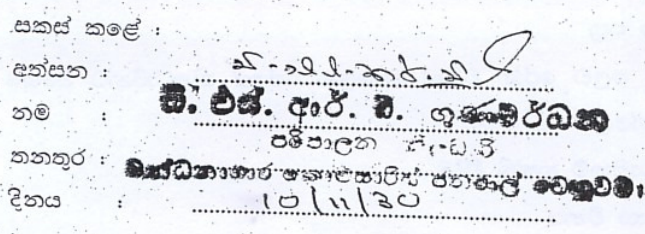 සකස් කළේ :
අත්සන :
නම : ඩී. එස්. ආර්. ඩී. ගුණවර්ධන
පරිපාලන
තනතුර : බන්ධනාගාර කොමසාරිස් ජනරාල් වෙනුවට
දිනය : 10/11/30